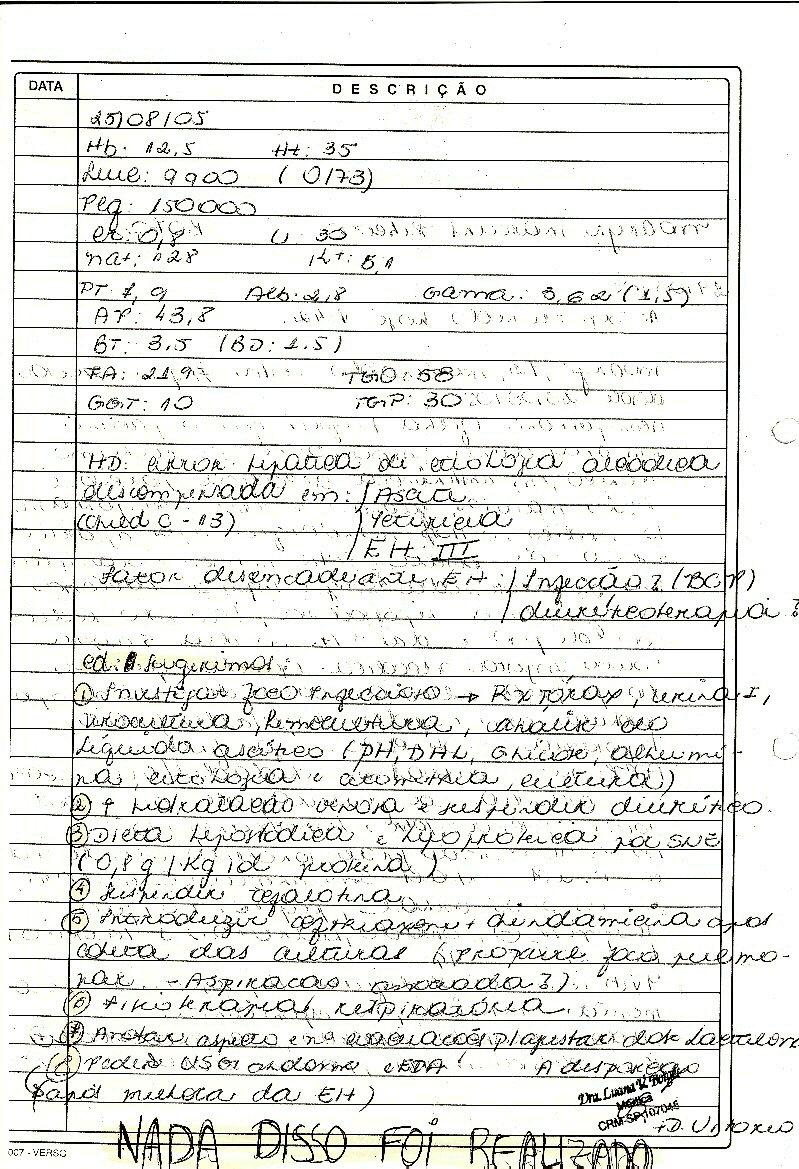 DATA DESCRIÇÃO
25/08/05
Hb: 12,5 Ht: 35
Leuc: 9900 (0/73)
Plq: 150000
Cr: 0,8 U 30
Na+: 128 K+: 5,1
PT: 7,9 Alb: 2,8 Gama: 3,62 (1,5)
AP: 43,8
BT: 3.5 (BD: 1.5)
FA: 219 TGO 58
GGT: 10 TGP: 30
HD: cirrose hepática de etiologia alcoólica
descompensada em: Ascite
(Child C - 13) Icterícia
EH III
Fator desencadeante EH: Infecção? (BCP)
diureticoterapia?
cd: Sugerimos
① Investigar foco infeccioso → RX tórax, urina I,
urocultura, hemocultura, análise do
líquido ascítico (pH, DHL, glicose, albumi-
na, citologia e citometria, cultura)
② ↑ hidratação venosa e suspender diurético.
③ Dieta hipossódica e hipoprotéica por SNE
(0,8 g/Kg/d proteína)
④ Suspender cefalotina
⑤ Introduzir ceftriaxona + clindamicina após
coleta das culturas (provável foco pulmo-
nar - Aspiração associada?)
⑥ Fisioterapia respiratória
⑦ Anotar aspecto e nº evacuações p/ ajustar dose lactulona
⑧ Pedir USG abdome e EDA A disposição
(após melhora da EH)
Dra. Luana V.
Médica
CRM-SP 107045
+ D.
007 - VERSO
NADA DISSO FOI REALIZADO